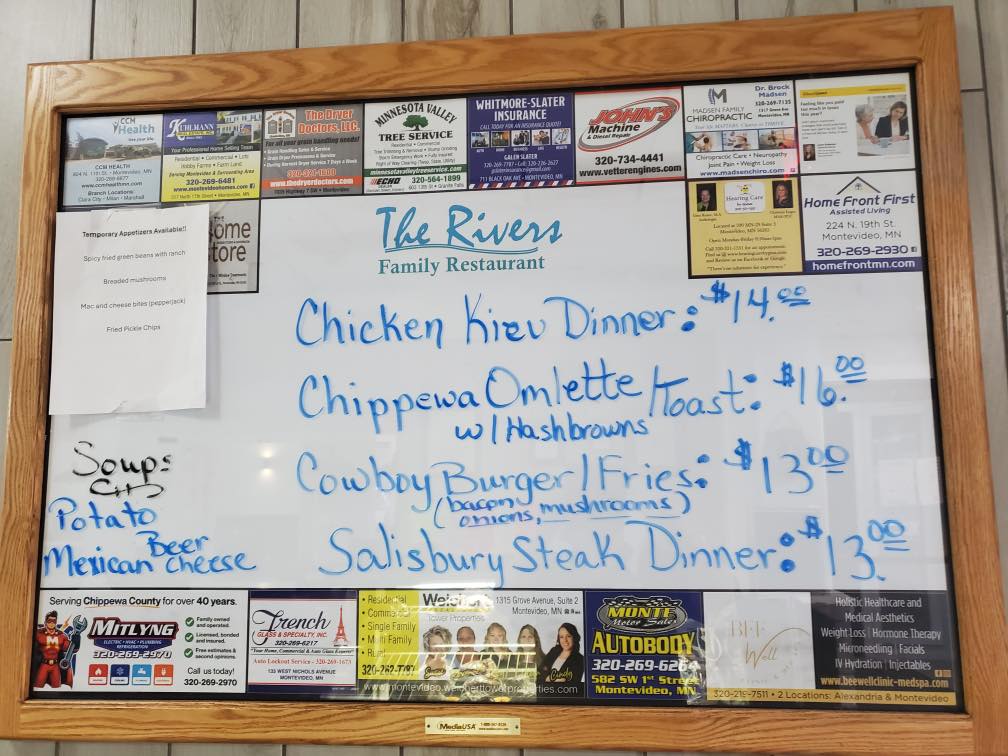 CCM
Health
CCM HEALTH
824 N. 11th St. • Montevideo, MN
320-269-8877
www.ccmhealthmn.com
Branch Locations:
Clara City • Milan • Marshall
KUHLMANN
Your Professional Home Selling Team
Residential • Commercial • Lots
Hobby Farms • Farm Land
Serving Montevideo & Surrounding Area
320-269-6481
www.montevideohomes.com
The Dryer
Doctors, LLC.
For all your grain handling needs!
www.thedryerdoctors.com
MINNESOTA VALLEY
TREE SERVICE
Residential • Commercial
minnesotavalleytreeservice.com
ECHO
DEALER
320-564-1899
WHITMORE-SLATER
INSURANCE
CALL TODAY FOR AN INSURANCE QUOTE!
GALEN SLATER
711 BLACK OAK AVE • MONTEVIDEO, MN
JOHN'S
Machine
& Diesel Repair
320-734-4441
www.vetterengines.com
Dr. Brock
Madsen
320-269-7135
MADSEN FAMILY
CHIROPRACTIC
Chiropractic Care • Neuropathy
Joint Pain • Weight Loss
www.madsenchiro.com
Feeling like you paid
too much in taxes
this year?
Temporary Appetizers Available!!
Spicy fried green beans with ranch
Breaded mushrooms
Mac and cheese bites (pepperjack)
Fried Pickle Chips
THE
ome
tore
The Rivers
Family Restaurant
Hearing Care
Located at
Montevideo, MN 56265
Home Front First
Assisted Living
224 N. 19th St.
Montevideo, MN
320-269-2930
homefrontmn.com
Chicken Kiev Dinner: $14.00
Chippewa Omlette/Toast: $16.00
w/Hashbrowns
Cowboy Burger/Fries: $13.00
(bacon, mushrooms)
onions,
Salisbury Steak Dinner: $13.00
Soup:
Potato
Beer
Mexican Cheese
Serving Chippewa County for over 40 years.
MITLYNG
ELECTRIC • HVAC • PLUMBING
REFRIGERATION
320-269-2970
Family owned
and operated.
Licensed, bonded
and insured.
Free estimates &
second opinions.
Call us today!
320-269-2970
French
GLASS & SPECIALTY, INC.
320-269-6217
"Your Home, Commercial & Auto Glass Experts"
Auto Lockout Service - 320-269-1673
135 WEST NICHOLS AVENUE
MONTEVIDEO, MN
• Residential
• Comme
• Single Family
• Multi Family
• Rural
320-269-7787
Weichert
Tower Properties
1315 Grove Avenue, Suite 2
Montevideo, MN
Cindy
www.montevideo.weicherttowerproperties.com
MONTE
Motor Sales
AUTOBODY
320-269-6264
582 SW 1st Street
Montevideo, MN
BEE
Well
Holistic Healthcare and
Medical Aesthetics
Weight Loss | Hormone Therapy
Microneedling | Facials
IV Hydration | Injectables
www.beewellclinic-medspa.com
320-215-7511 • 2 Locations: Alexandria & Montevideo
MediaUSA